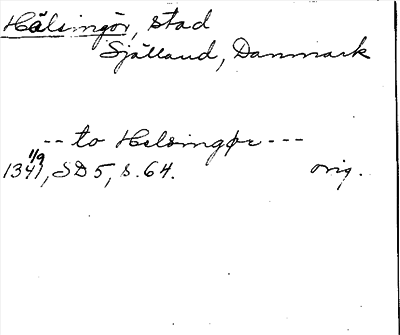 Hälsingör, stad
Själland, Danmark
-- to Helsingør ---
1341 1/9, SD 5, s. 64. orig.